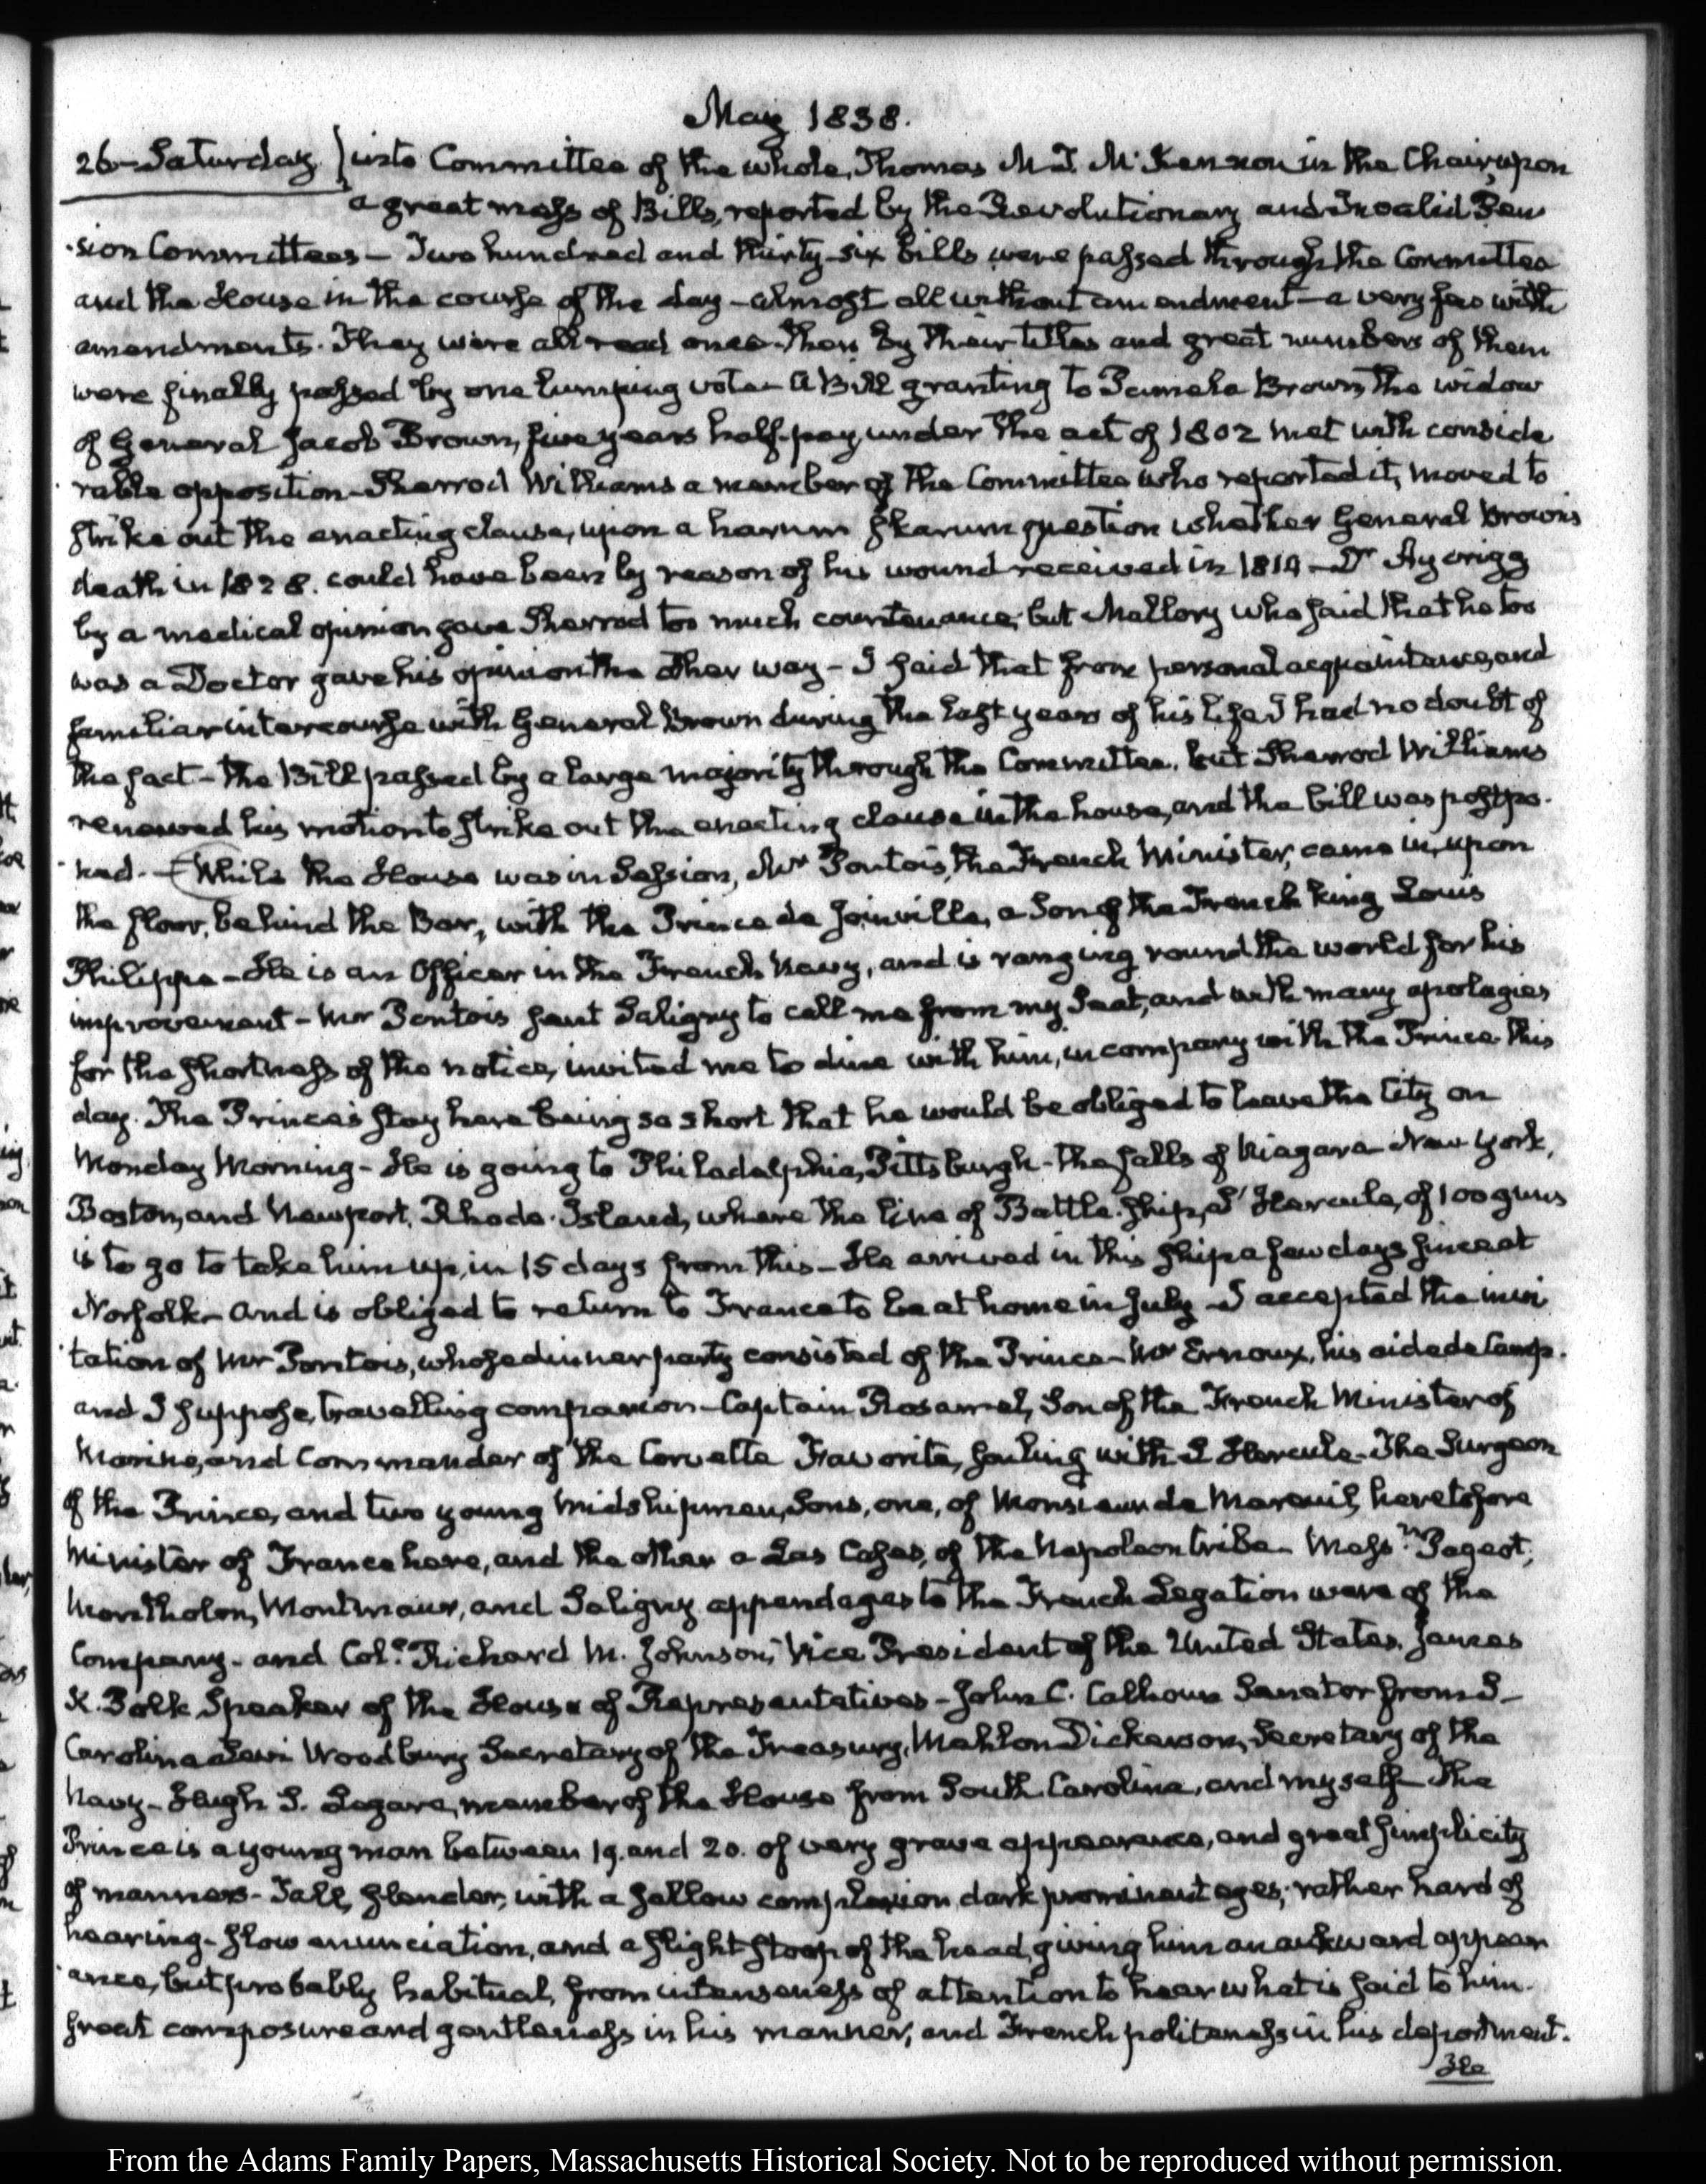 May 1838.
26 Saturday } into Committee of the whole, Thomas M. T. McKennon in the Chair, upon
a great mass of Bills, reported by the Revolutionary and Invalid Pen
sion Committees — Two hundred and thirty-six bills were passed through the Committee
and the House in the course of the day — almost all without amendment — a very few with
amendments. They were all read once then by their titles and great numbers of them
were finally passed by one lumping vote — A Bill granting to Pamela Brown, the widow
of General Jacob Brown, five years half-pay, under the act of 1802 met with conside
rable opposition — Sherrod Williams a member of the Committee who reported it, moved to
strike out the enacting clause, upon a harum skarum question whether General Brown's
death in 1828. could have been by reason of his wound received in 1814 — Dr Aycrigg
by a medical opinion gave Sherrod too much countenance; but Mallory who said that he too
was a Doctor gave his opinion the other way — I said that from personal acquaintance, and
familiar intercourse with General Brown during the last years of his life I had no doubt of
the fact — the Bill passed by a large majority through the Committee, but Sherrod Williams
renewed his motion to strike out the enacting clause in the house, and the bill was postpo-
ned. — While the House was in Session, Mr Pontois, the French Minister, came in, upon
the floor, behind the Bar, with the Prince de Joinville, a Son of the French king Louis
Philippe — He is an Officer in the French Navy, and is ranging round the world for his
improvement — Mr Pontois sent Saligny to call me from my Seat, and with many apologies
for the shortness of the notice, invited me to dine with him, in company with the Prince this
day. The Prince's stay here being so short that he would be obliged to leave the City on
Monday Morning — He is going to Philadelphia, Pittsburgh — the falls of Niagara — New York,
Boston, and Newport, Rhode-Island, where the line of Battle Ship, L'Hercule, of 100 guns
is to go to take him up, in 15 days from this — He arrived in this ship a few days since at
Norfolk — and is obliged to return to France to be at home in July — I accepted the invi
tation of Mr Pontois, whose dinner party consisted of the Prince — Mr Ernoux, his aide de Camp.
and I suppose, travelling companion — Captain Rosamel, Son of the French Minister of
Marine, and Commander of the Corvette Favorite, sailing with L'Hercule — The Surgeon
of the Prince, and two young Midshipmen, Sons, one, of Monsieur de Mareuil, heretofore
Minister of France here, and the other a Las Cases, of the Napoleon tribe — Messrs Pageot,
Montholon, Montmaur, and Saligny appendages to the French Legation were of the
Company — and Col. Richard M. Johnson, Vice President of the United States. James
K. Polk Speaker of the House of Representatives — John C. Calhoun Senator from S—
Carolina Levi Woodbury Secretary of the Treasury, Mahlon Dickerson, Secretary of the
Navy — Hugh S. Legare, member of the House from South Carolina, and myself — The
Prince is a young man between 19. and 20. of very grave appearance, and great simplicity
of manners — Tall, slender, with a sallow complexion dark prominent eyes; rather hard of
hearing — slow enunciation, and a slight stoop of the head, giving him an awkward appear
ance, but probably habitual, from intenseness of attention to hear what is said to him.
great composure and gentleness in his manner, and French politeness in his deportment.
He
From the Adams Family Papers, Massachusetts Historical Society. Not to be reproduced without permission.